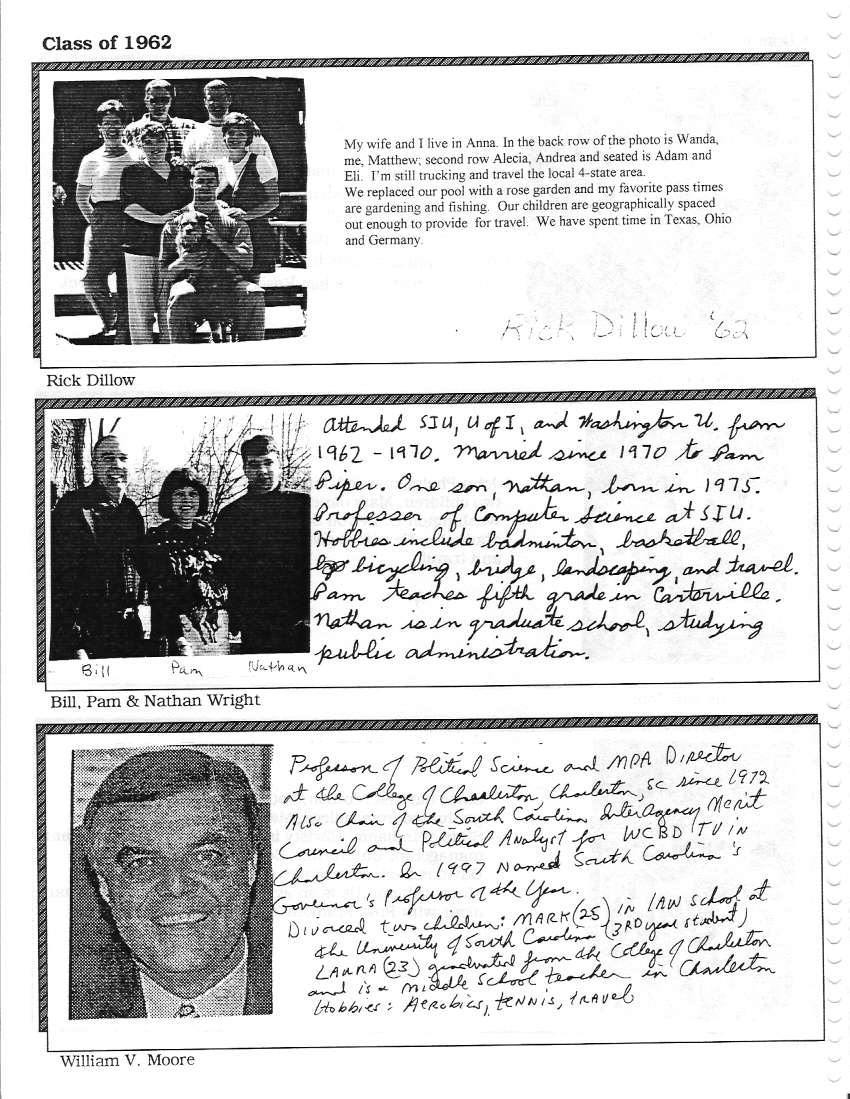 Class of 1962
My wife and I live in Anna. In the back row of the photo is Wanda,
me, Matthew; second row Alecia, Andrea and seated is Adam and
Eli. I'm still trucking and travel the local 4-state area.
We replaced our pool with a rose garden and my favorite pass times
are gardening and fishing. Our children are geographically spaced
out enough to provide for travel. We have spent time in Texas, Ohio
and Germany.
Rick Dillow '62
Rick Dillow
Attended SIU, U of I, and Washington U. from
1962 - 1970. Married since 1970 to Pam
Piper. One son, Nathan, born in 1975.
Professor of Computer Science at SIU.
Hobbies include badminton, basketball,
bicycling, bridge, landscaping, and travel.
Pam teaches fifth grade in Carterville.
Nathan is in graduate school, studying
public administration.
Bill Pam Nathan
Bill, Pam & Nathan Wright
Professor of Political Science and MPA Director
at the College of Charleston, Charleston, SC since 1972
Also Chair of the South Carolina InterAgency Merit
Council and Political Analyst for WCBD TV in
Charleston. In 1997 Named South Carolina's
Governor's Professor of the Year.
Divorced two children: MARK (25) in LAW school at
the University of South Carolina (3RD year student)
LAURA (23) graduated from the College of Charleston
and is a Middle School teacher in Charleston
Hobbies: Aerobics, tennis, travel
William V. Moore